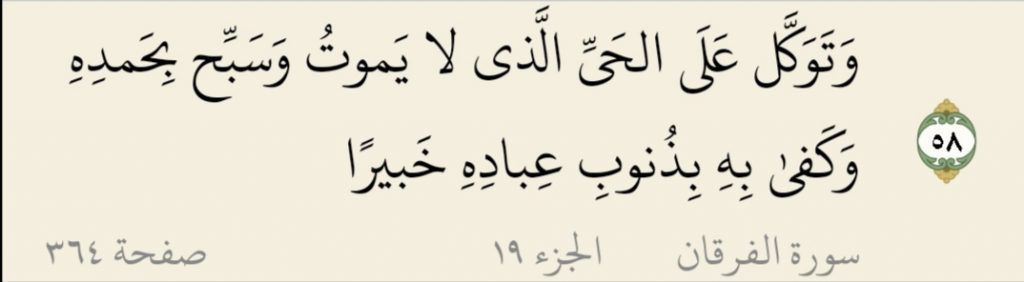 وَتَوَكَّل عَلَى الحَىِّ الَّذى لا يَموتُ وَسَبِّح بِحَمدِهِ
وَكَفىٰ بِهِ بِذُنوبِ عِبادِهِ خَبيرًا
٥٨
سورة الفرقان الجزء ١٩ صفحة ٣٦٤